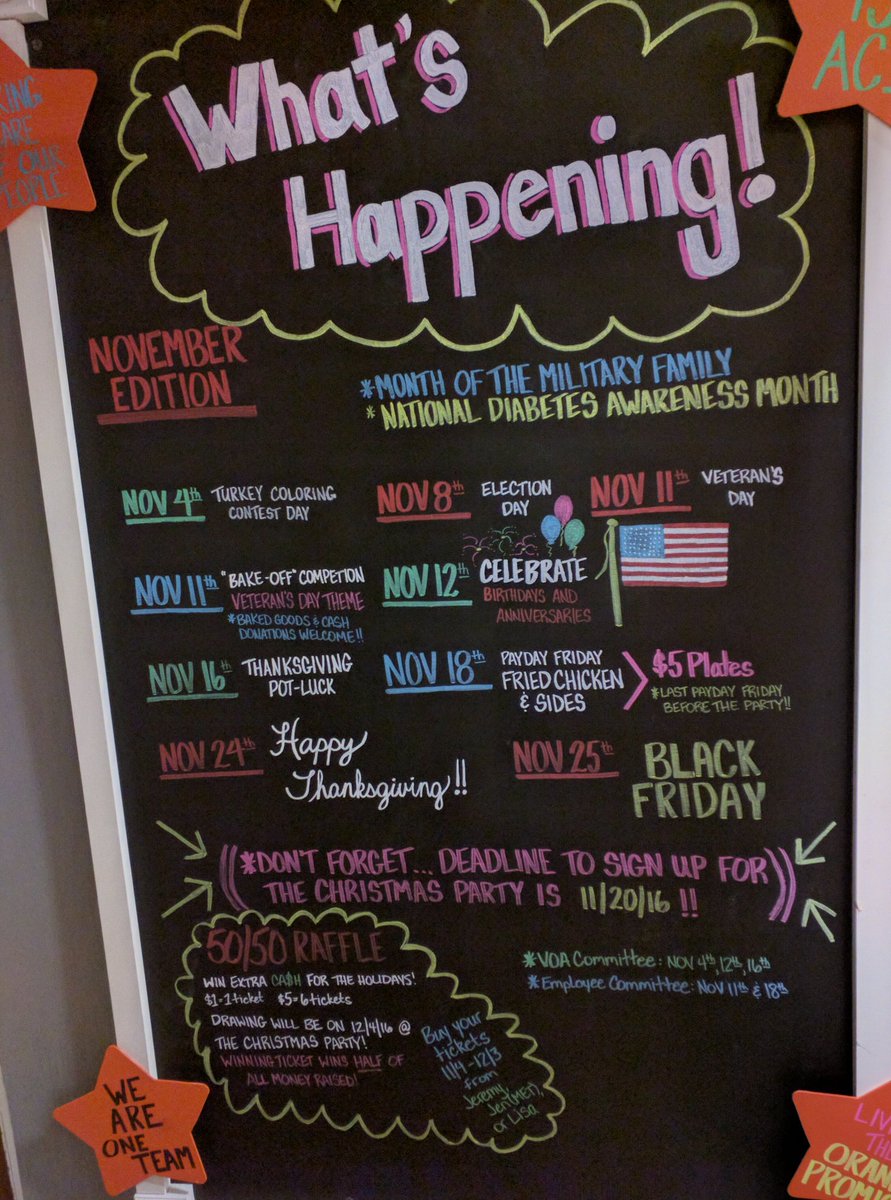 KING
CARE
OF OUR
PEOPLE
ACT
What's
Happening!
NOVEMBER
EDITION
*MONTH OF THE MILITARY FAMILY
*NATIONAL DIABETES AWARENESS MONTH
NOV 4th TURKEY COLORING
CONTEST DAY
NOV 8th ELECTION
DAY
NOV 11th VETERAN'S
DAY
NOV 11th "BAKE-OFF" COMPETION
VETERAN'S DAY THEME
*BAKED GOODS & CASH
DONATIONS WELCOME!!
NOV 12th CELEBRATE
BIRTHDAYS AND
ANNIVERSARIES
NOV 16th THANKSGIVING
POT-LUCK
NOV 18th PAYDAY FRIDAY
FRIED CHICKEN
& SIDES
$5 Plates
*LAST PAYDAY FRIDAY
BEFORE THE PARTY!!
NOV 24th Happy
Thanksgiving!!
NOV 25th BLACK
FRIDAY
*DON'T FORGET... DEADLINE TO SIGN UP FOR
THE CHRISTMAS PARTY IS 11/20/16 !!
50/50 RAFFLE
WIN EXTRA CA$H FOR THE HOLIDAYS!
$1=1 ticket $5=6 tickets
DRAWING WILL BE ON 12/4/16 @
THE CHRISTMAS PARTY!
WINNING TICKET WINS HALF OF
ALL MONEY RAISED!
Buy your
tickets
11/4-12/3
from
Jeremy,
Jen(MET),
or Lisa
*VOA Committee: NOV 4th, 12th, 16th
*Employee Committee: NOV 11th & 18th
WE
ARE
ONE
TEAM
LIV
THE
ORAN
PROMI